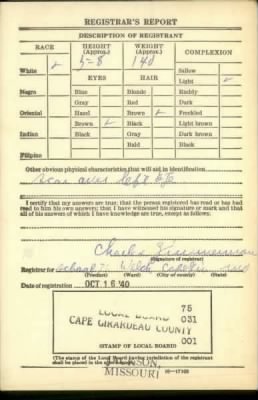 REGISTRAR'S REPORT
DESCRIPTION OF REGISTRANT
RACE HEIGHT (Approx.) WEIGHT (Approx.) COMPLEXION
White ✓ 5-8 140 Sallow
Light ✓
EYES HAIR
Negro Blue Blonde Ruddy
Gray Red Dark
Oriental Hazel Brown ✓ Freckled
Brown ✓ Black Light brown
Indian Black Gray Dark brown
Bald Black
Filipino
Other obvious physical characteristics that will aid in identification
Scar over left Eye
I certify that my answers are true; that the person registered has read or has had
read to him his own answers; that I have witnessed his signature or mark and that
all of his answers of which I have knowledge are true, except as follows:
Charles
(Signature of registrar)
Registrar for Welch Cape
(Precinct) (City or county) (State)
Date of registration OCT 16 '40
LOCAL BOARD 75
CAPE GIRARDEAU COUNTY 031
001
STAMP OF LOCAL BOARD
(The stamp of the Local Board having jurisdiction of the registrant
shall be placed in the above space.)
JACKSON,
MISSOURI